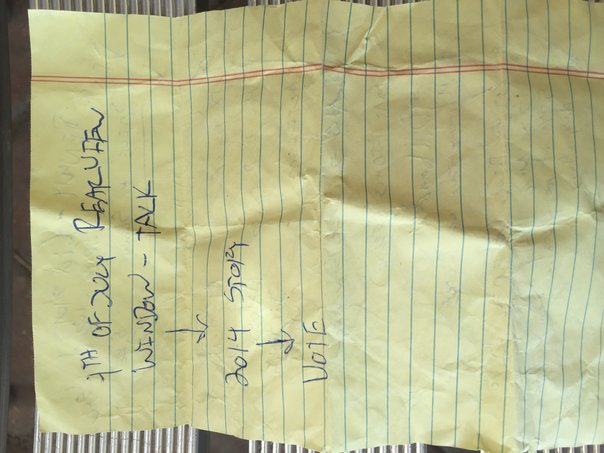 4TH OF JULY REARVIEW
WINDOW - TALK
↓
2014 STORY
↓
VOTE